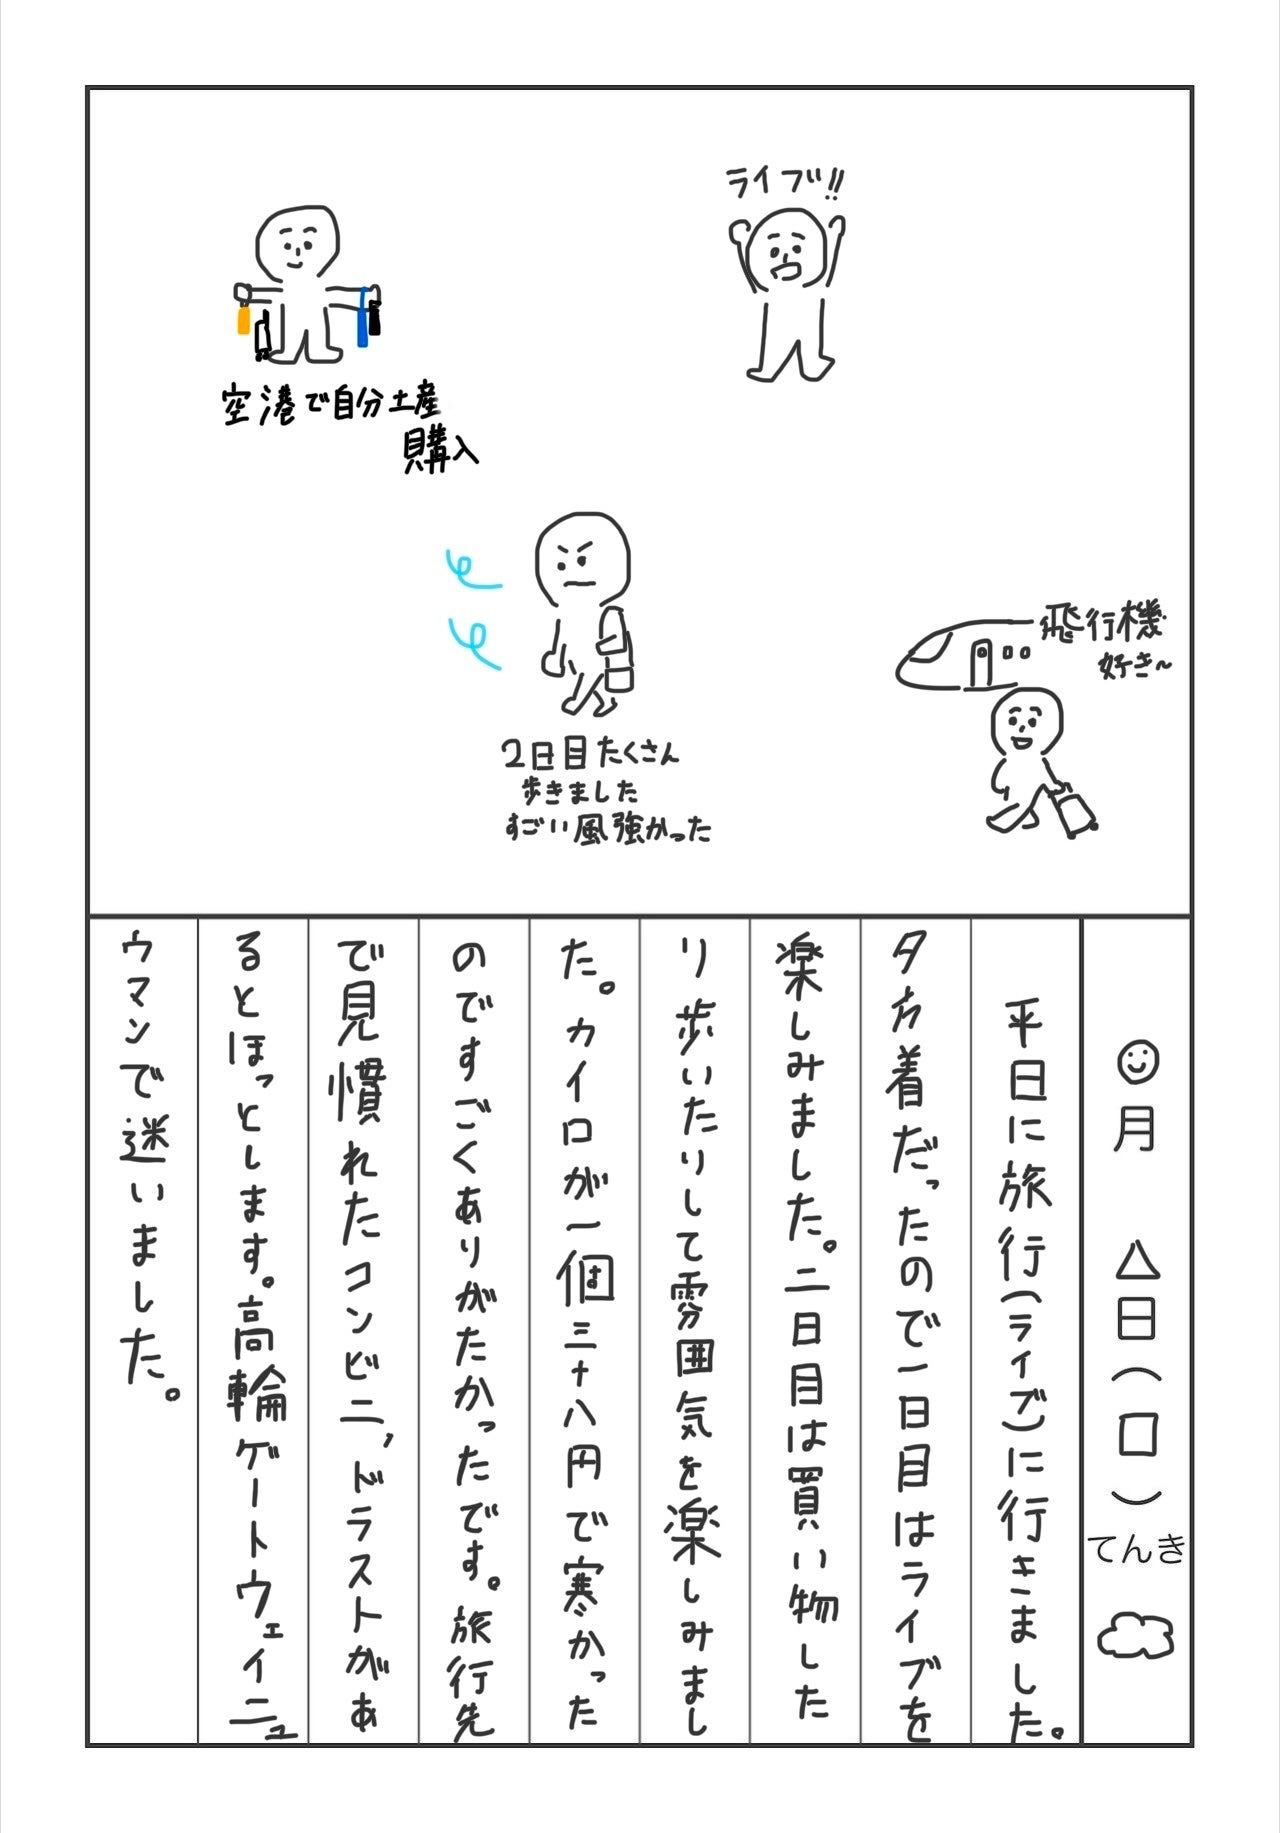 ライブ!!
空港で自分土産
購入
飛行機
好き〜
2日目たくさん
歩きました
すごい風強かった
月 △日(口)てんき
平日に旅行(ライブ)に行きました。
夕方着だったので一日目はライブを
楽しみました。二日目は買い物した
り歩いたりして雰囲気を楽しみまし
た。カイロが一個三十八円で寒かった
のですごくありがたかったです。旅行先
で見慣れたコンビニ、ドラストがあ
るとほっとします。高輪ゲートウェイニュ
ウマンで迷いました。